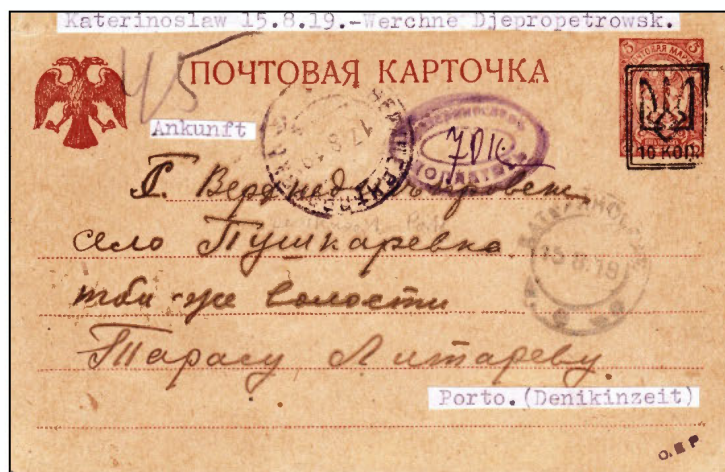 Katerinoslaw 15.8.19.-Werchne Djepropetrowsk.
45
ПОЧТОВАЯ КАРТОЧКА
10 КОП.
Ankunft
17 8 19
70к
Г. Верхнеднѣпровск,
село Пушкаревка
той-же волости
15.8.19
Тарасу Литареву
Porto.(Denikinzeit)